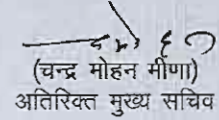 (चन्द्र मोहन मीणा)
अतिरिक्त मुख्य सचिव